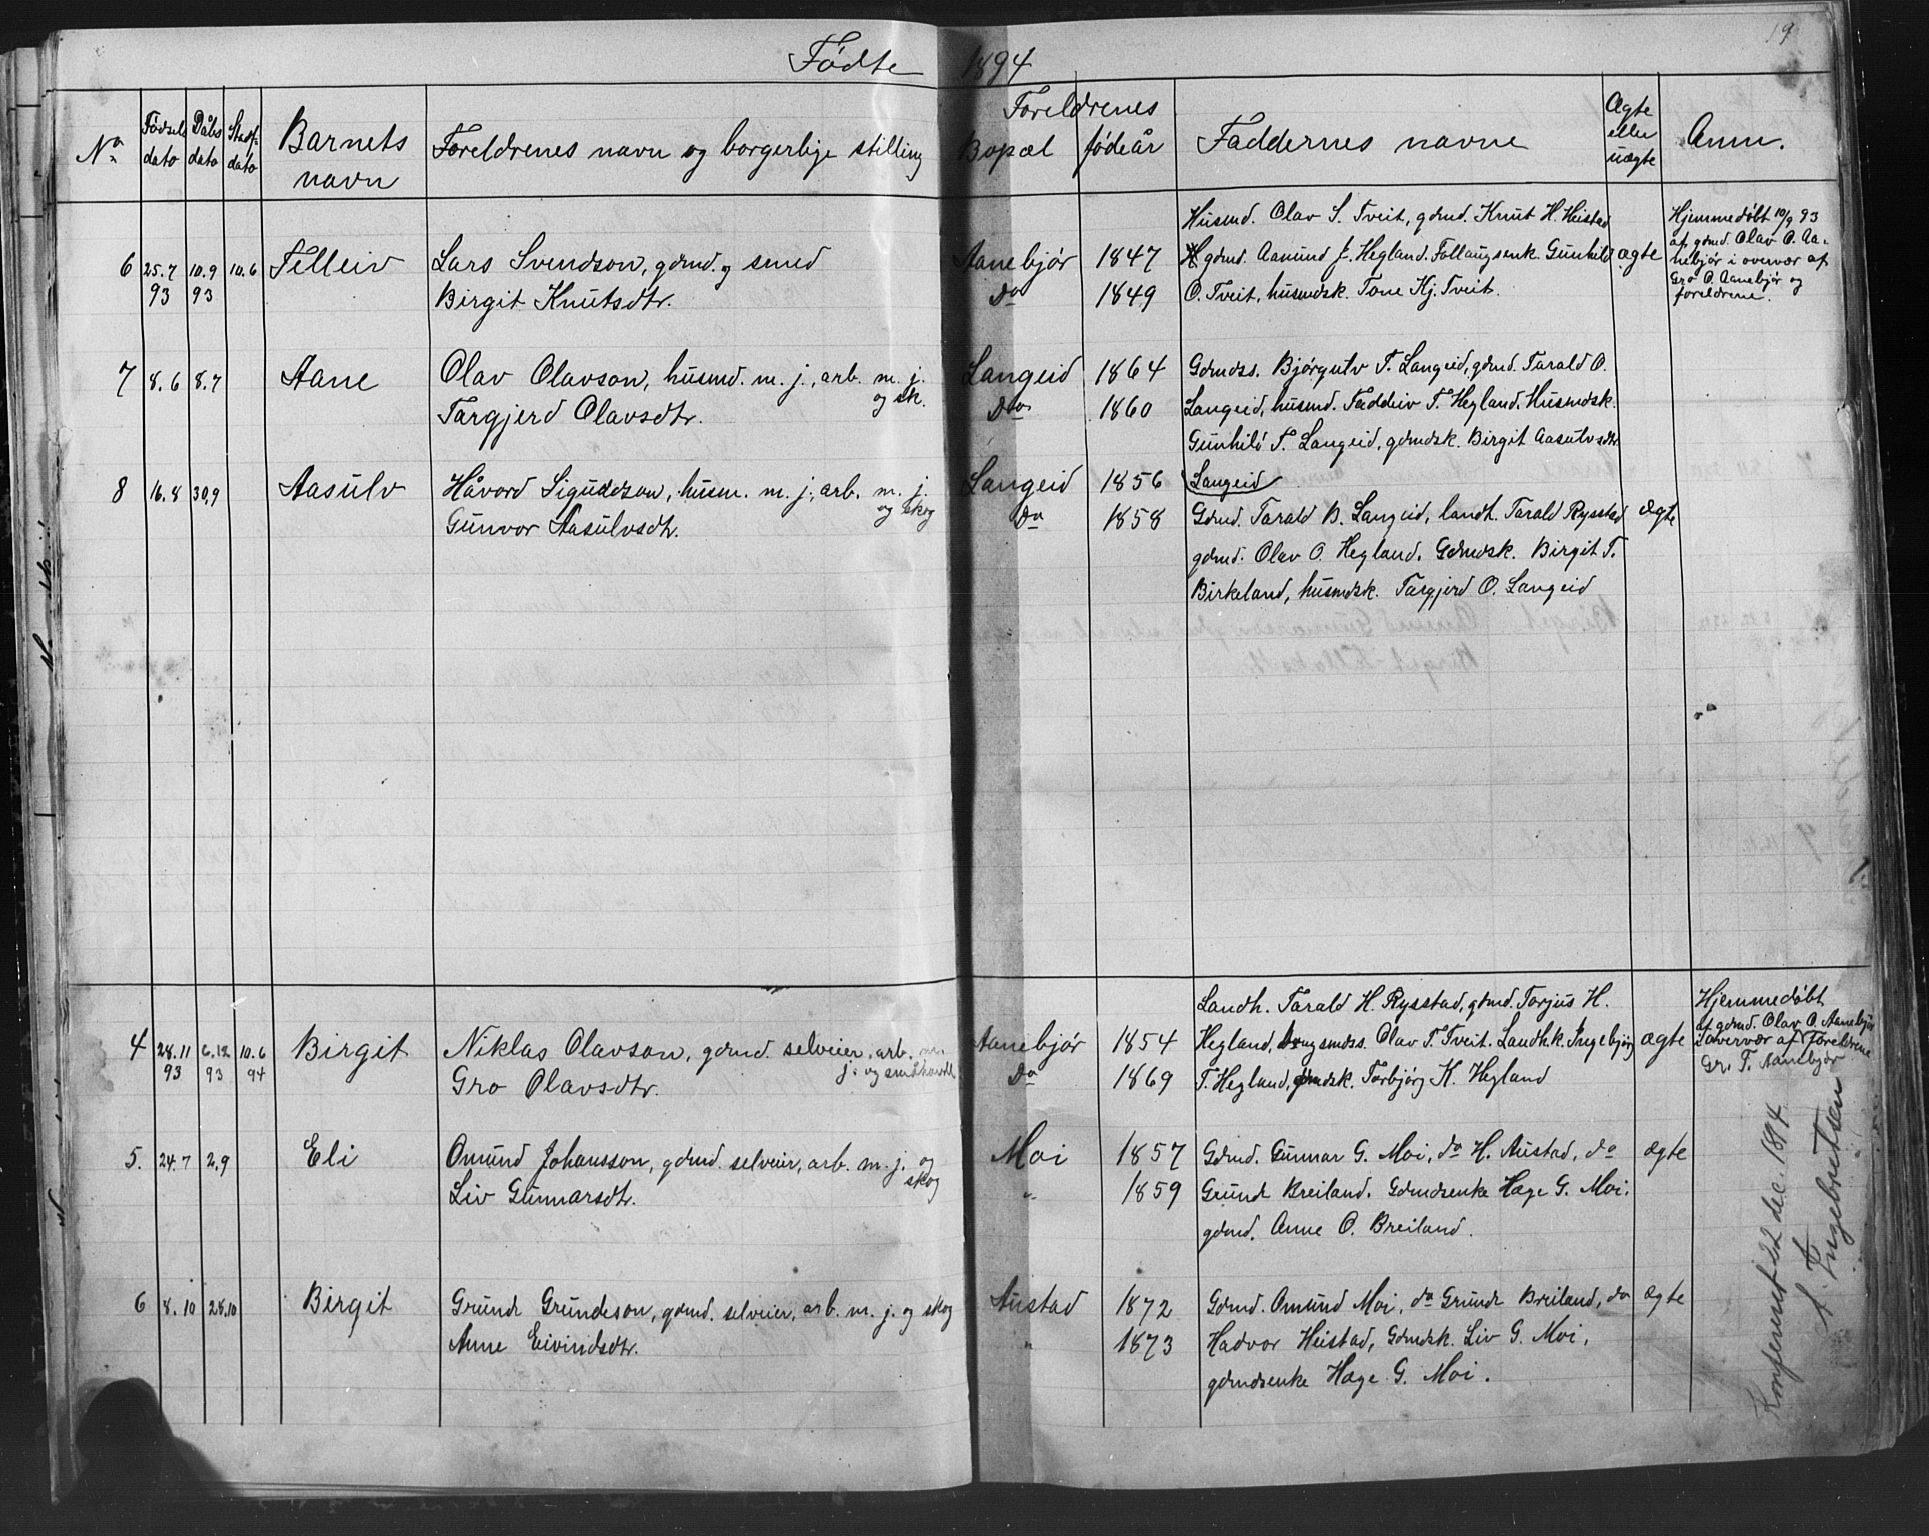 19
Fødte 1894
No
Fødsels dato
Dåbs dato
Stadf. dato
Barnets navn
Foreldrenes navn og borgerlige stilling
Foreldrenes
Bopæl
fødeår
Faddernes navne
Ægte eller uægte
Anm.
Husmd. Olav S. Tveit, gdmd. Knut H. Heistad
6 25.7 10.9 10.6 Telleiv Lars Svendson, gdmd. og smed Aanebjør 1847 gdmd. Aamund J. Hegland. Follaugsenk. Gunhild ægte
93 93 Birgit Knutsdtr. Do 1849 O. Tveit, husmdsk. Tone Kj. Tveit.
Hjemmedøbt 10/9 93
af gdmd. Olav O. Aa-
nebjør i overvær af
Gro O. Aanebjør og
foreldrene.
7 8.6 8.7 Aane Olav Olavson, husmd. m. j., arb. m. j. Langeid 1864 Gdmdss. Bjørgulv T. Langeid, gdmd. Tarald O.
og sk.
Targjerd Olavsdtr. Do 1860 Langeid, husmd. Taddeiv T. Hegland. Husmdsk.
Gunhild T. Langeid, gdmdsk. Birgit Aasulvsdtr
8 16.8 30.9 Aasulv Håvord Siguddson, husm. m. j., arb. m. j. Langeid 1856 Langeid
og skog
Gunvor Aasulvsdtr. Do 1858 Gdmd. Tarald B. Langeid, landh. Tarald Rysstad ægte
gdmd. Olav O. Hegland. Gdmdsk. Birgit T.
Birkeland, husmdsk. Targjerd O. Langeid
Landh. Tarald H. Rysstad, gdmd. Torjus H.
4 28.11 6.12 10.6 Birgit Niklas Olavson, gdmd. selveier, arb. m. Aanebjør 1854 Hegland, ungsmdss. Olav T. Tveit. Landhk. Ingebjørg ægte
j. og småhandl
93 93 94 Gro Olavsdtr. Do 1869 T. Hegland, gdmdsk. Torbjørg K. Hegland
Hjemmedøbt
af gdmd. Olav O. Aanebjør
i overvær af foreldrene
Gr. T. Aanebjør
5. 24.7 2.9 Eli Omund Johansson, gdmd. selveier, arb. m. j. og Moi 1857 Gdmd. Gunnar G. Moi, do H. Austad, do ægte
skog
Liv Gunnarsdtr. " 1859 Grunde Breiland. Gdmdsenke Hæge G. Moi,
gdmd. Anne O. Breiland.
6 8.10 28.10 Birgit Grunde Grundeson, gdmd. selveier, arb. m. j. og skog Austad 1872 Gdmd. Omund Moi, do Grunde Breiland, do ægte
Anne Eivindsdtr. " 1873 Hadvor Heistad, Gdmdsk. Liv G. Moi,
gdmdsenke Hæge G. Moi.
Konfereret 22 dec. 1894
A. Ingebretsen